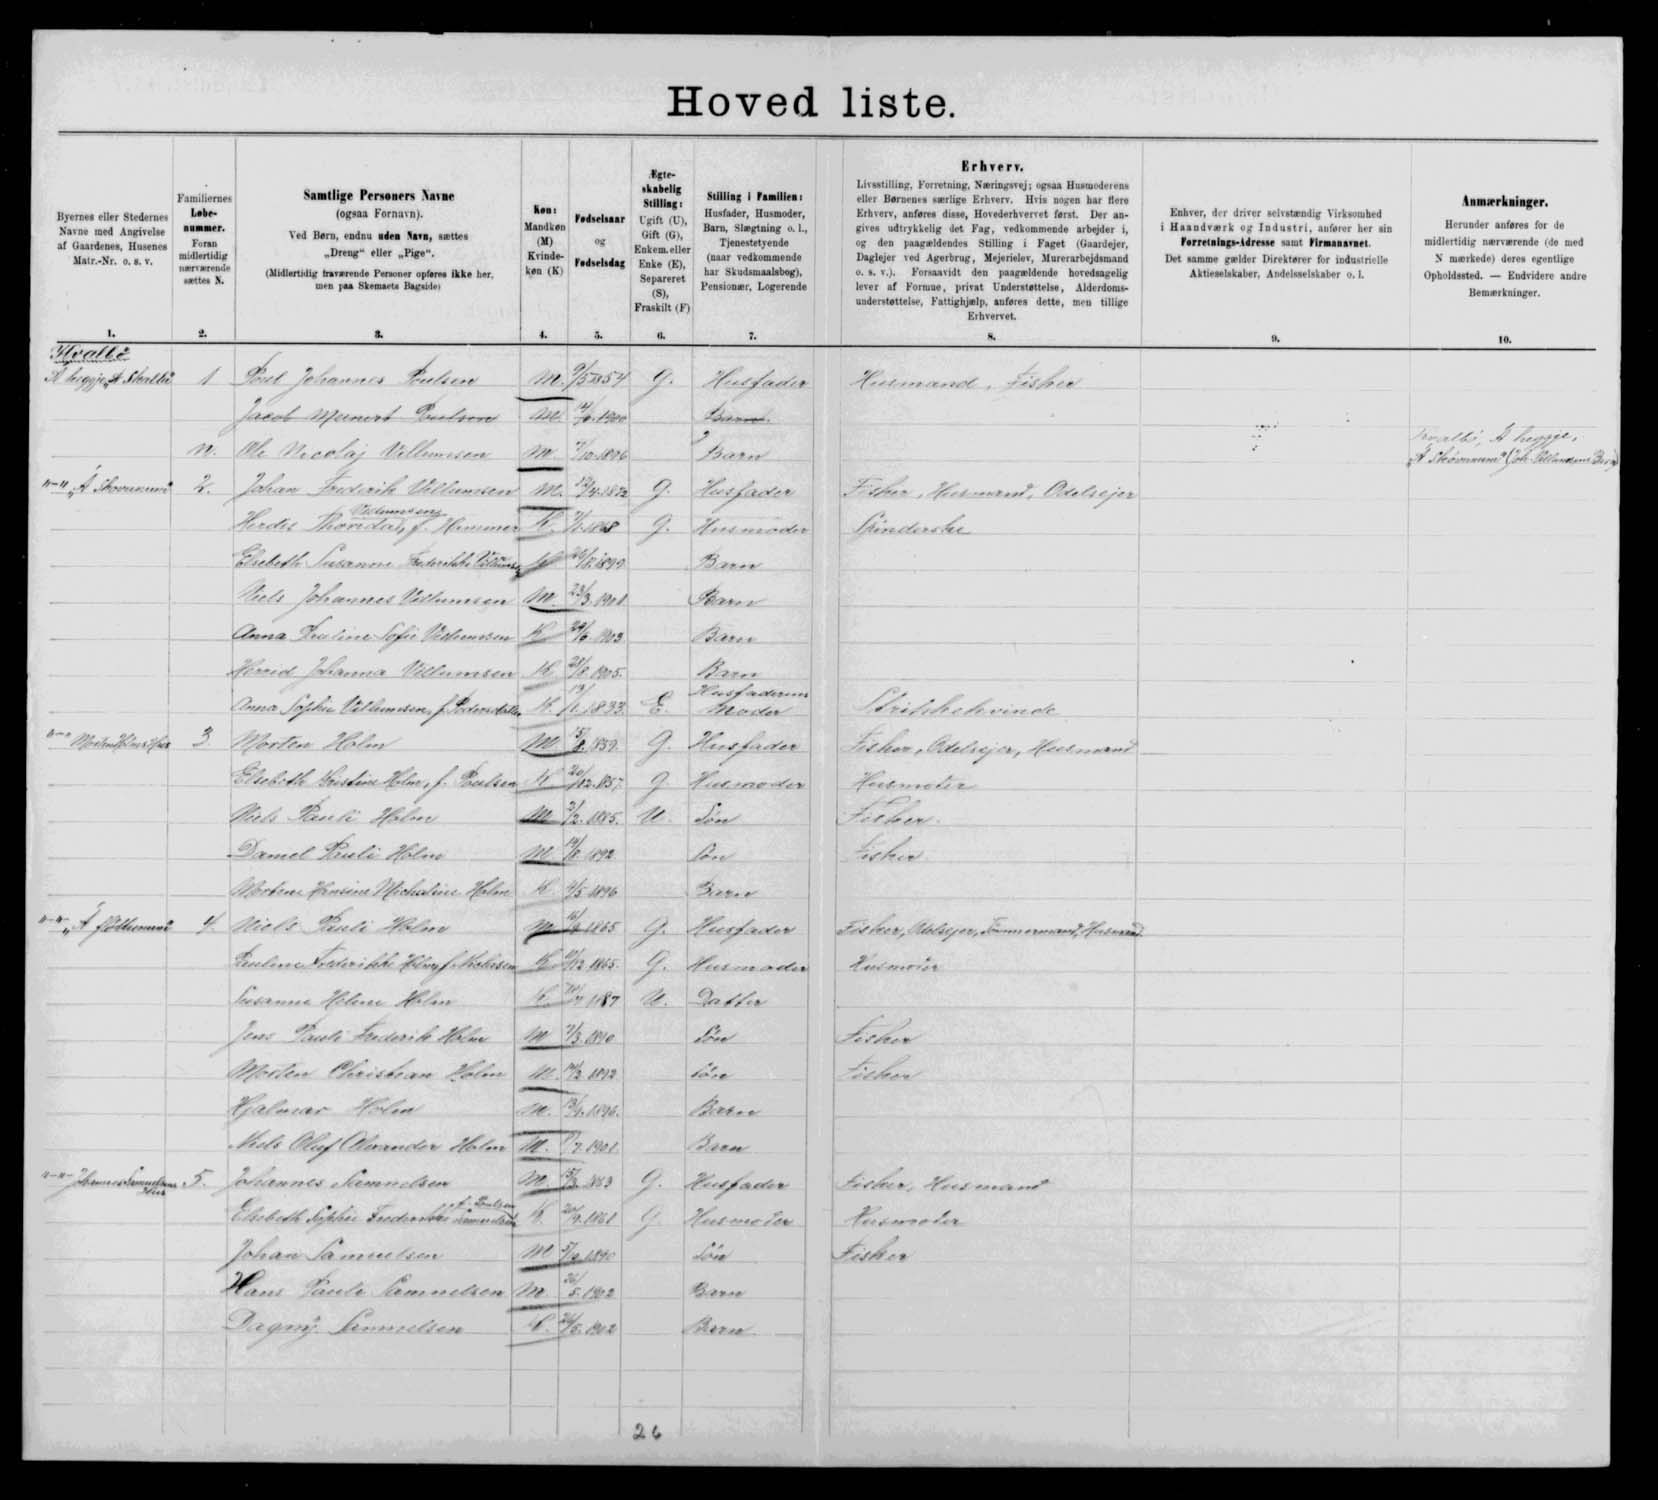 Hoved liste.
1. Byernes eller Stedernes Navne med Angivelse af Gaardenes, Husenes Matr.-Nr. o. s. v.
2. Familiernes Løbenummer. Foran midlertidig nærværende sættes N.
3. Samtlige Personers Navne (ogsaa Fornavn). Ved Børn, endnu uden Navn, sættes „Dreng“ eller „Pige“. (Midlertidig fraværende Personer opføres ikke her, men paa Skemaets Bagside)
4. Køn: Mandkøn (M) Kvindekøn (K)
5. Fødselsaar og Fødselsdag
6. Ægteskabelig Stilling: Ugift (U), Gift (G), Enkem. eller Enke (E), Separeret (S), Fraskilt (F)
7. Stilling i Familien: Husfader, Husmoder, Barn, Slægtning o. l., Tjenestetyende (naar vedkommende har Skudsmaalsbog), Pensionær, Logerende
8. Erhverv. Livsstilling, Forretning, Næringsvej; ogsaa Husmoderens eller Børnenes særlige Erhverv. Hvis nogen har flere Erhverv, anføres disse, Hovederhvervet først. Der angives udtrykkelig det Fag, vedkommende arbejder i, og den paagældendes Stilling i Faget (Gaardejer, Daglejer ved Agerbrug, Mejerielev, Murerarbejdsmand o. s. v.). Forsaavidt den paagældende hovedsagelig lever af Formue, privat Understøttelse, Alderdomsunderstøttelse, Fattighjælp, anføres dette, men tillige Erhvervet.
9. Enhver, der driver selvstændig Virksomhed i Haandværk og Industri, anfører her sin Forretnings-Adresse samt Firmanavnet. Det samme gælder Direktører for industrielle Aktieselskaber, Andelsselskaber o. l.
10. Anmærkninger. Herunder anføres for de midlertidig nærværende (de med N mærkede) deres egentlige Opholdssted. — Endvidere andre Bemærkninger.
Hvalbö
1 Poul Johannes Poulsen M. 1854 G. Husfader Husmand, Fisker
Jacob Meinert Poulsen M. 1900 Barn.
N. Ole Nicolaj Villumsen M 10.1896 Barn Hvalbö, Á heggje,
2. Johan Frederik Villumsen M. 4.1872 G. Husfader Fisker, Husmand, Odelsejer
Villumsen
Herdis f. Hammer K. 1868 G. Husmoder Spinderske
Elsebeth Susanne Frederikke Villumsen K 1899 Barn
Niels Johannes Villumsen M. 23/3.1901 Barn
Anna Pauline Sofie Villumsen K 1903 Barn
Johanna Villumsen K. 1905. Barn
Anna Sophie Villumsen, f. K. 1833. E. Husfaderens Moder Strikkekvinde
Morten Holms Hus 3. Morten Holm M 1839. G. Husfader Fisker, Odelsejer, Husmand
Elsebeth Kristine Holm, f. Poulsen K 20/12.1857. G. Husmoder Husmoder
Niels Pauli Holm M 2/2.1885. U. Søn Fisker.
Daniel Pauli Holm M. 1892 Søn Fisker
Hansine Michaline Holm K. 5.1896 Barn
4. Niels Pauli Holm M. 1865 G. Husfader Fisker, Odelsejer, Tømmermand, Husmand
Pauline Frederikke Holm, f. K 12.1865. G. Husmoder Husmoder
Susanne Holm K. 7 1887 U. Datter
Jens Pauli Frederik Holm M 3.1890 Søn Fisker
Morten Christian Holm M. 2.1892 Søn Fisker
Hjalmar Holm M. 1896. Barn
Niels Oluf Alexander Holm M. 7.1901 Barn
Johannes Samuelsens Hus 5. Johannes Samuelsen M. 1863 G. Husfader Fisker, Husmand
f. Poulsen
Elsebeth Sophie Frederikke Samuelsen K. 1861 G Husmoder Husmoder
Johan Samuelsen M 1890 Søn Fisker
Hans Pauli Samuelsen M. 26/5.1902 Barn
Dagmÿ Samuelsen K. 26/5.1902 Barn
26